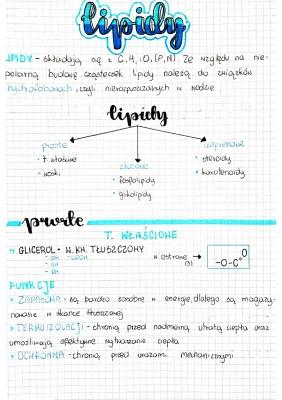 lipidy
LIPIDY - składają się z C, H, O, (P, N). Ze względu na nie-
polarną budowę cząsteczek lipidy należą do związków
hydrofobowych, czyli nierozpuszczalnych w wodzie
lipidy
proste
• t. właściwe
• woski
złożone
• fosfolipidy
• glikolipidy
izoprenowe
• steroidy
• karotenoidy
proste
T. WŁAŚCIWE
GLICEROL + W. KW. TŁUSZCZOWY
- OH - COOH
- OH
- OH
w. estrowe (3)
-O-C=O
FUNKCJE
• ZAPASOWA - są bardzo zasobne w energię, dlatego są magazy-
nowane w tkance tłuszczowej
• TERMOIZOLACJI - chronią przed nadmierną utratą ciepła oraz
umożliwiają efektywne wytwarzanie ciepła
• OCHRONNA - chronią przed urazami mechanicznymi